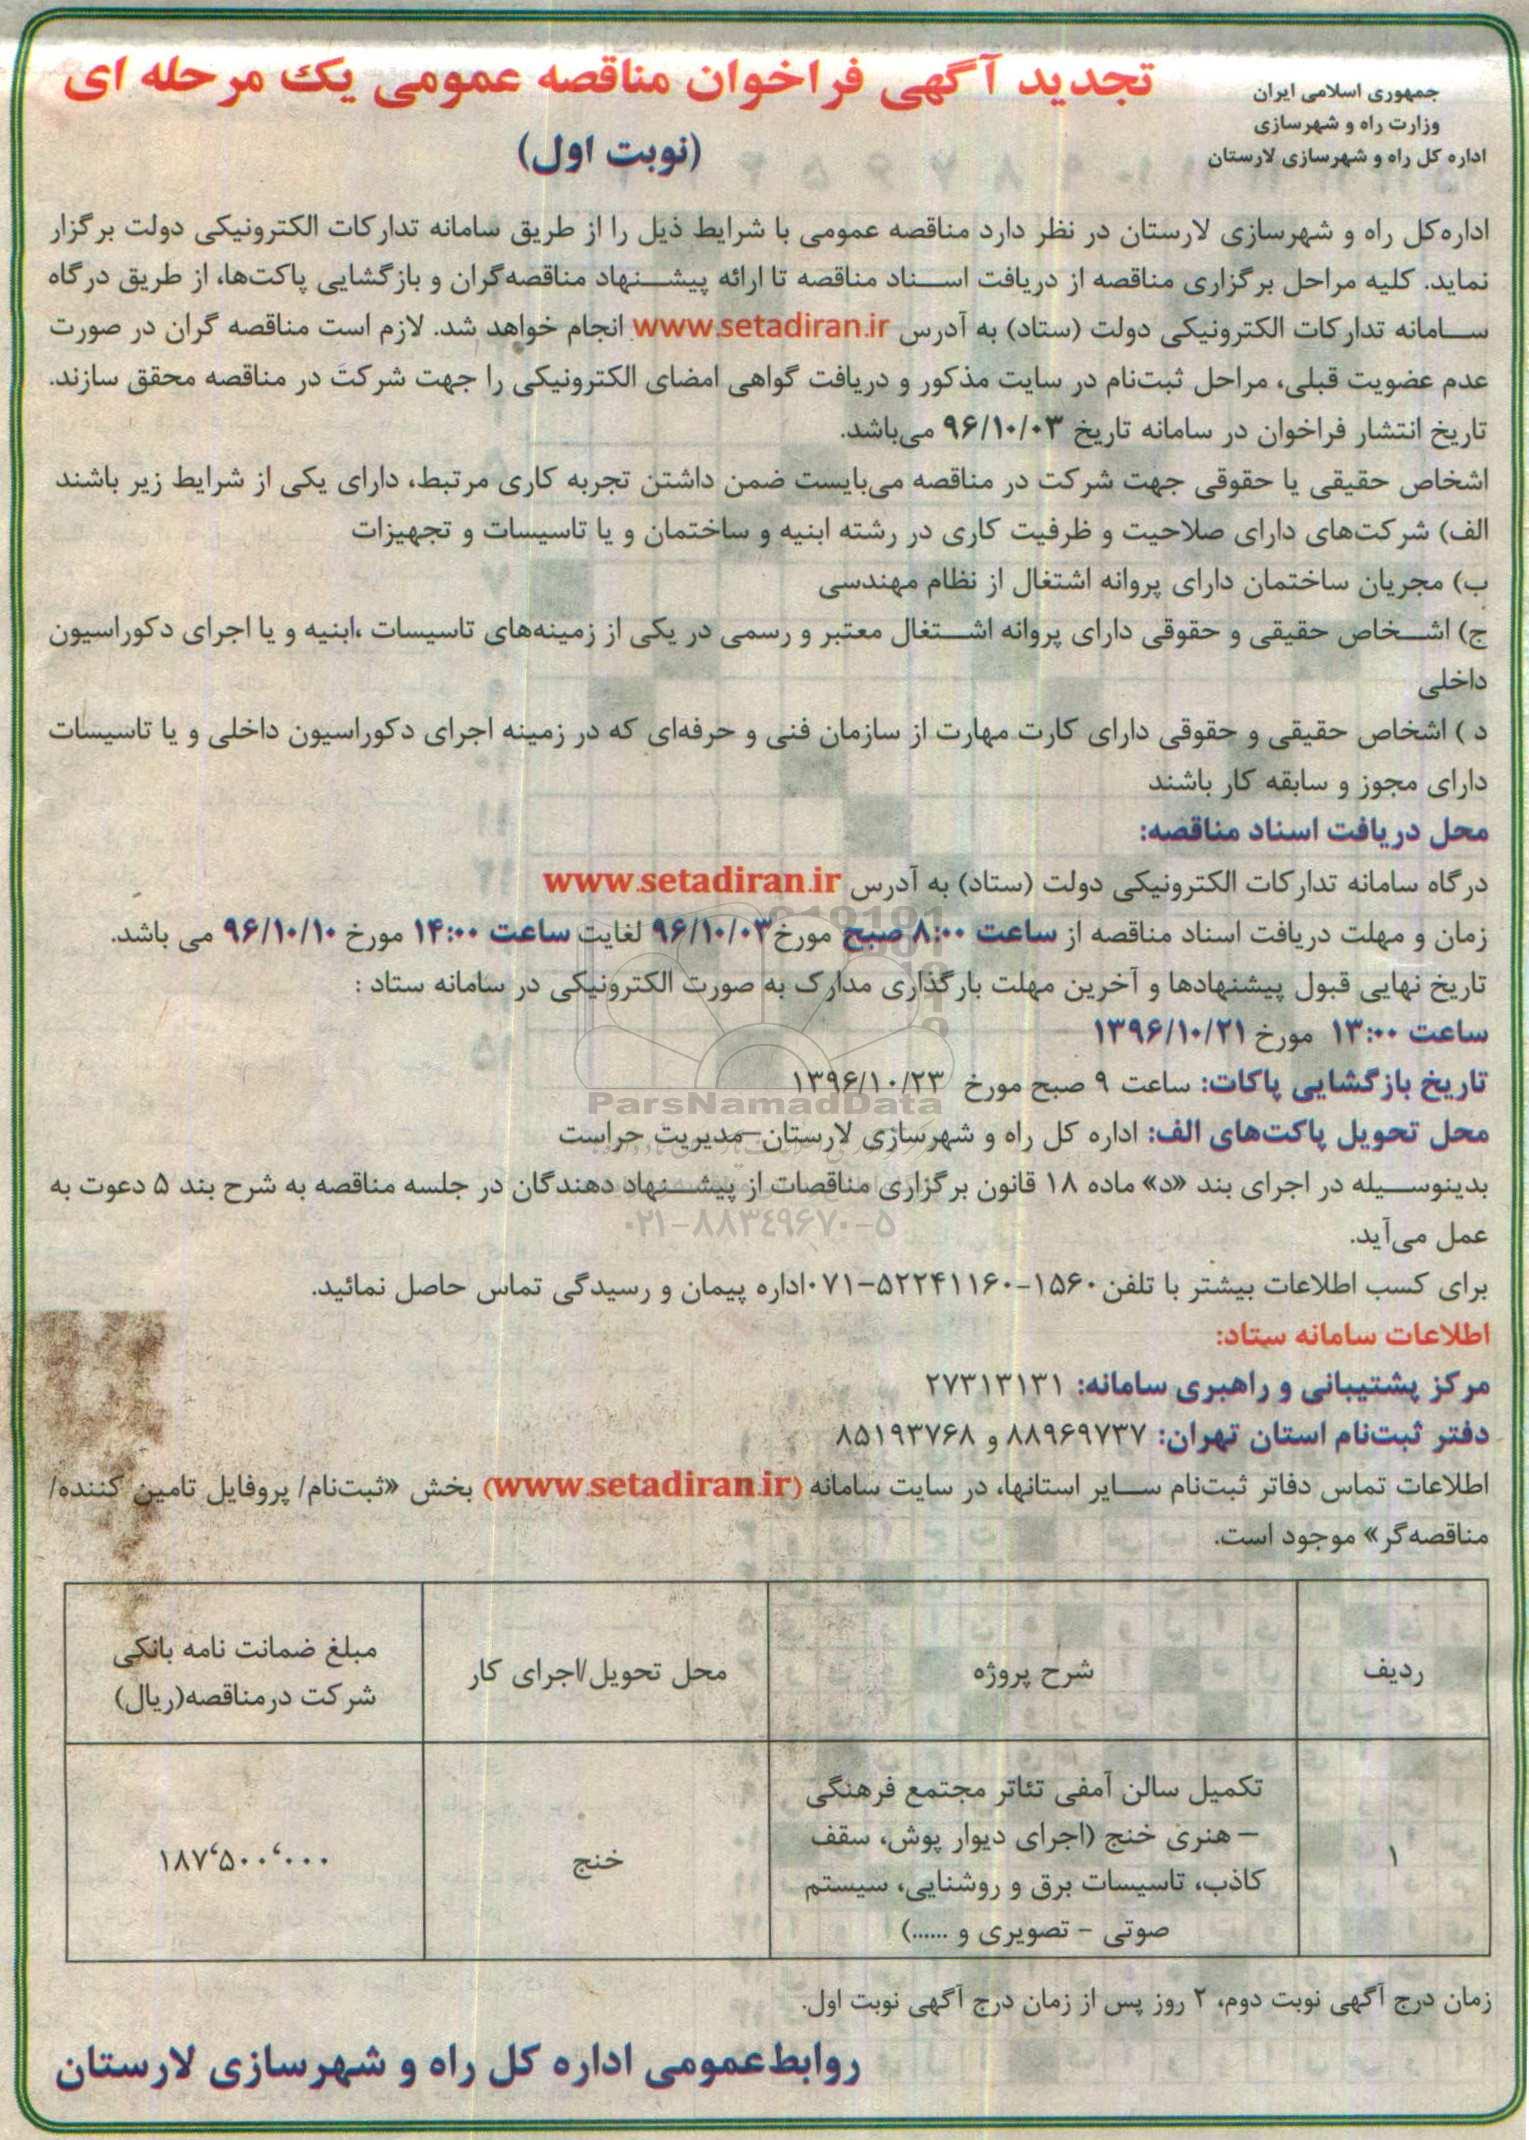 جمهوری اسلامی ایران
وزارت راه و شهرسازی
اداره کل راه و شهرسازی لارستان
تجدید آگهی فراخوان مناقصه عمومی یک مرحله ای
(نوبت اول)
اداره‌کل راه و شهرسازی لارستان در نظر دارد مناقصه عمومی با شرایط ذیل را از طریق سامانه تدارکات الکترونیکی دولت برگزار
نماید. کلیه مراحل برگزاری مناقصه از دریافت اسناد مناقصه تا ارائه پیشنهاد مناقصه‌گران و بازگشایی پاکت‌ها، از طریق درگاه
سامانه تدارکات الکترونیکی دولت (ستاد) به آدرس www.setadiran.ir انجام خواهد شد. لازم است مناقصه گران در صورت
عدم عضویت قبلی، مراحل ثبت‌نام در سایت مذکور و دریافت گواهی امضای الکترونیکی را جهت شرکت در مناقصه محقق سازند.
تاریخ انتشار فراخوان در سامانه تاریخ ۹۶/۱۰/۰۳ می‌باشد.
اشخاص حقیقی یا حقوقی جهت شرکت در مناقصه می‌بایست ضمن داشتن تجربه کاری مرتبط، دارای یکی از شرایط زیر باشند
الف) شرکت‌های دارای صلاحیت و ظرفیت کاری در رشته ابنیه و ساختمان و یا تاسیسات و تجهیزات
ب) مجریان ساختمان دارای پروانه اشتغال از نظام مهندسی
ج) اشخاص حقیقی و حقوقی دارای پروانه اشتغال معتبر و رسمی در یکی از زمینه‌های تاسیسات ،ابنیه و یا اجرای دکوراسیون
داخلی
د ) اشخاص حقیقی و حقوقی دارای کارت مهارت از سازمان فنی و حرفه‌ای که در زمینه اجرای دکوراسیون داخلی و یا تاسیسات
دارای مجوز و سابقه کار باشند
محل دریافت اسناد مناقصه:
درگاه سامانه تدارکات الکترونیکی دولت (ستاد) به آدرس www.setadiran.ir
زمان و مهلت دریافت اسناد مناقصه از ساعت ۸:۰۰ صبح مورخ۹۶/۱۰/۰۳ لغایت ساعت ۱۴:۰۰ مورخ ۹۶/۱۰/۱۰ می باشد.
تاریخ نهایی قبول پیشنهادها و آخرین مهلت بارگذاری مدارک به صورت الکترونیکی در سامانه ستاد :
ساعت ۱۳:۰۰ مورخ ۱۳۹۶/۱۰/۲۱
تاریخ بازگشایی پاکات: ساعت ۹ صبح مورخ ۱۳۹۶/۱۰/۲۳
ParsNamadData
محل تحویل پاکت‌های الف: اداره کل راه و شهرسازی لارستان–مدیریت حراست
بدینوسیله در اجرای بند «د» ماده ۱۸ قانون برگزاری مناقصات از پیشنهاد دهندگان در جلسه مناقصه به شرح بند ۵ دعوت به
۰۲۱-۸۸۳۴۹۶۷۰-۵
عمل می‌آید.
برای کسب اطلاعات بیشتر با تلفن۱۵۶۰-۰۷۱-۵۲۲۴۱۱۶۰اداره پیمان و رسیدگی تماس حاصل نمائید.
اطلاعات سامانه ستاد:
مرکز پشتیبانی و راهبری سامانه: ۲۷۳۱۳۱۳۱
دفتر ثبت‌نام استان تهران: ۸۸۹۶۹۷۳۷ و ۸۵۱۹۳۷۶۸
اطلاعات تماس دفاتر ثبت‌نام سایر استانها، در سایت سامانه (www.setadiran.ir) بخش «ثبت‌نام/ پروفایل تامین کننده/
مناقصه‌گر» موجود است.
ردیف
شرح پروژه
محل تحویل/اجرای کار
مبلغ ضمانت نامه بانکی
شرکت درمناقصه(ریال)
۱
تکمیل سالن آمفی تئاتر مجتمع فرهنگی
– هنری خنج (اجرای دیوار پوش، سقف
کاذب، تاسیسات برق و روشنایی، سیستم
صوتی – تصویری و ......)
خنج
۱۸۷٬۵۰۰٬۰۰۰
زمان درج آگهی نوبت دوم، ۲ روز پس از زمان درج آگهی نوبت اول.
روابط‌عمومی اداره کل راه و شهرسازی لارستان